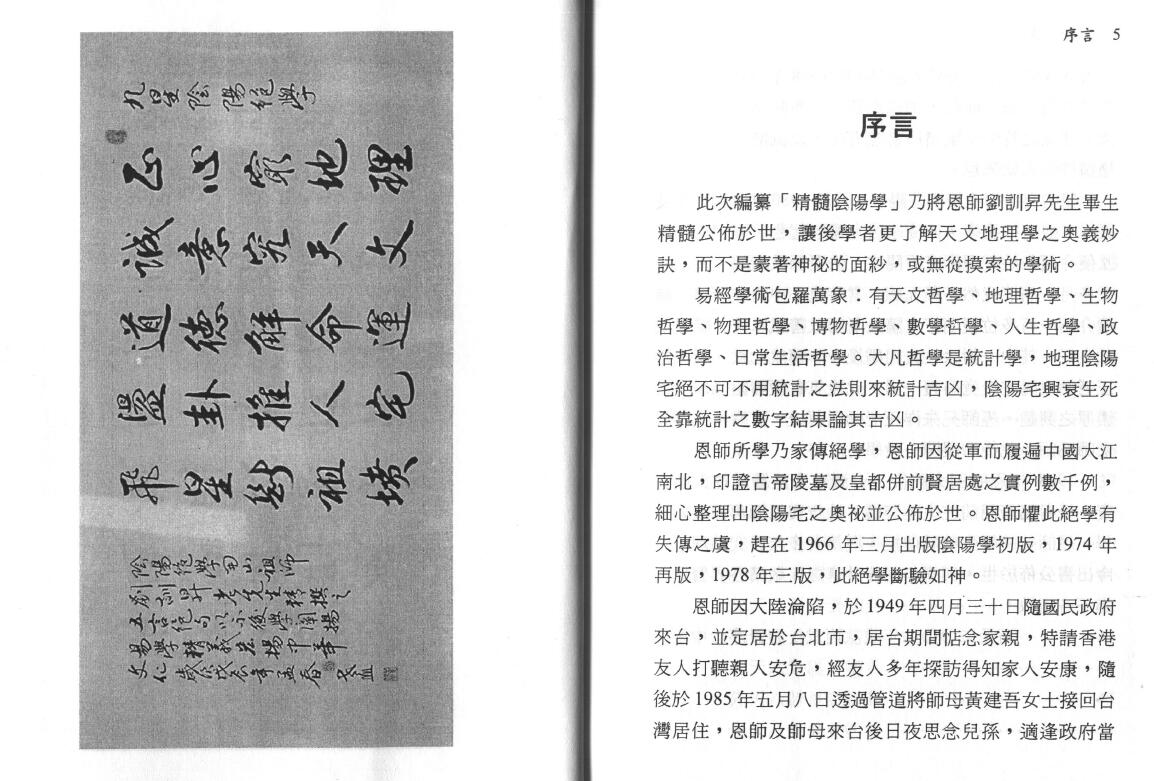 九星陰陽絕學
正心窮地理
誠意究天文
道德解命運
盪卦推人宅
飛星斷祖墳
陰陽絕學開山祖師
劉訓昇老先生精撰之
五言絕句以示後學闡揚
易學精義宏揚中華
文化歲次戊辰年孟春
序言 5
序言
此次編纂「精髓陰陽學」乃將恩師劉訓昇先生畢生
精髓公佈於世，讓後學者更了解天文地理學之奧義妙
訣，而不是蒙著神祕的面紗，或無從摸索的學術。
易經學術包羅萬象：有天文哲學、地理哲學、生物
哲學、物理哲學、博物哲學、數學哲學、人生哲學、政
治哲學、日常生活哲學。大凡哲學是統計學，地理陰陽
宅絕不可不用統計之法則來統計吉凶，陰陽宅興衰生死
全靠統計之數字結果論其吉凶。
恩師所學乃家傳絕學，恩師因從軍而履遍中國大江
南北，印證古帝陵墓及皇都併前賢居處之實例數千例，
細心整理出陰陽宅之奧祕並公佈於世。恩師懼此絕學有
失傳之虞，趕在 1966 年三月出版陰陽學初版，1974 年
再版，1978 年三版，此絕學斷驗如神。
恩師因大陸淪陷，於 1949 年四月三十日隨國民政府
來台，並定居於台北市，居台期間惦念家親，特請香港
友人打聽親人安危，經友人多年探訪得知家人安康，隨
後於 1985 年五月八日透過管道將師母黃建吾女士接回台
灣居住，恩師及師母來台後日夜思念兒孫，適逢政府當